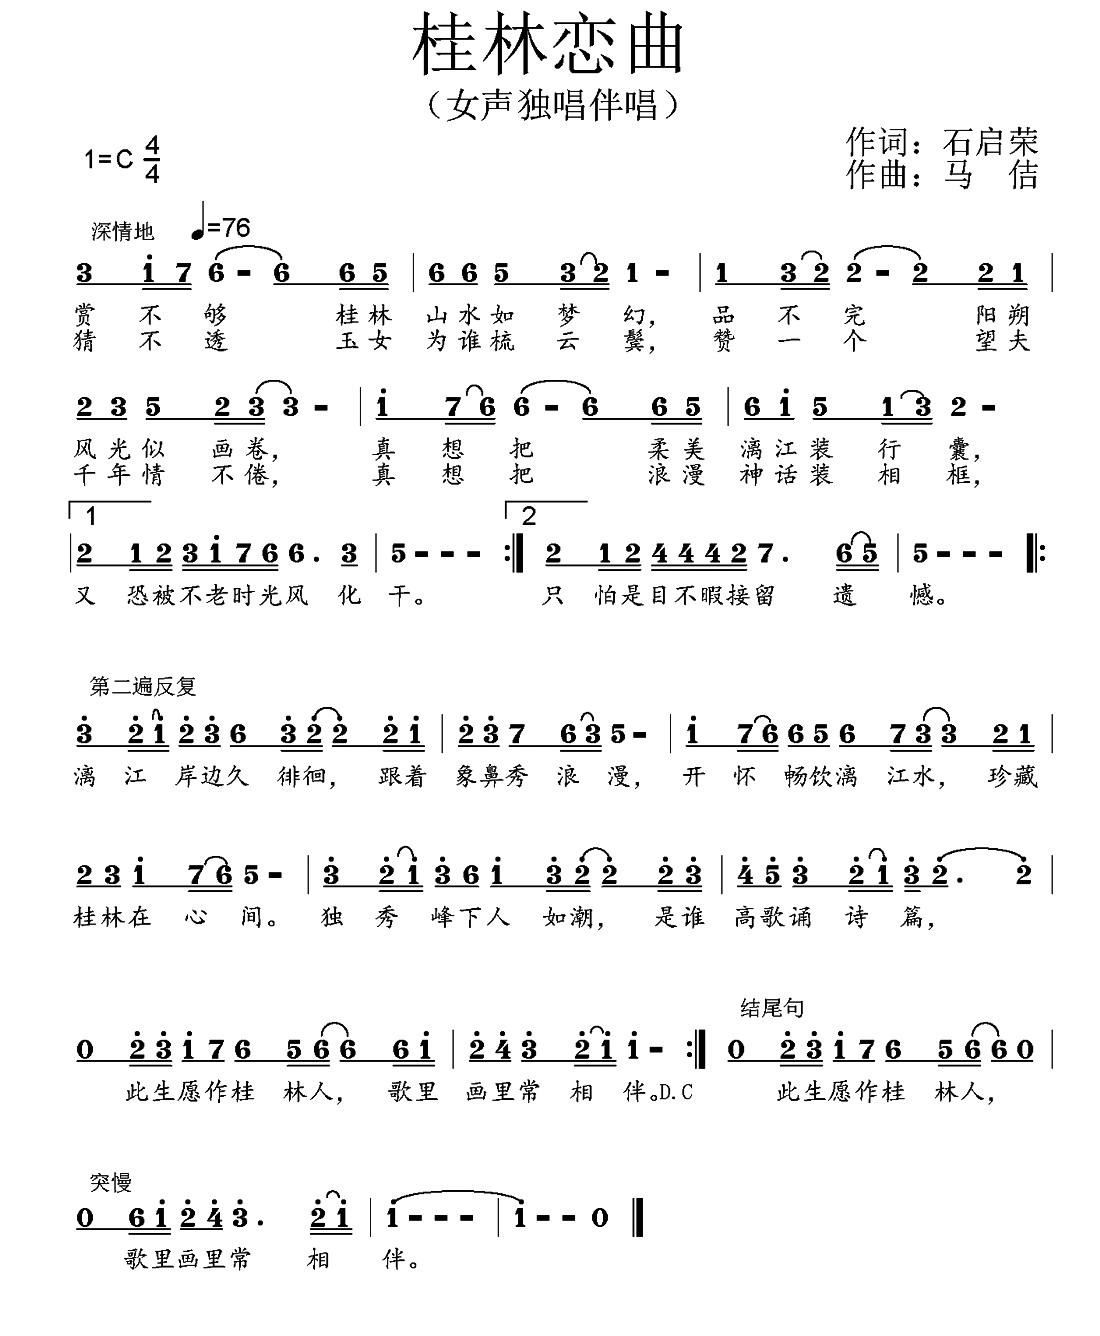 桂林恋曲
（女声独唱伴唱）
1=C 4/4
作词：石启荣
作曲：马　佶
深情地 ♩=76
3 i 7 6 - 6 6 5 | 6 6 5 3 2 1 - | 1 3 2 2 - 2 2 1 |
赏 不 够 桂林 山水如 梦 幻， 品 不 完 阳朔
猜 不 透 玉女 为谁梳 云 鬓， 赞 一 个 望夫
2 3 5 2 3 3 - | i 7 6 6 - 6 6 5 | 6 i 5 1 3 2 -
风光似 画卷， 真 想 把 柔美 漓江装 行 囊，
千年情 不倦， 真 想 把 浪漫 神话装 相 框，
1 2
| 2 1 2 3 i 7 6 6 . 3 | 5 - - - :| 2 1 2 4 4 4 2 7 . 6 5 | 5 - - - |:
又 恐被不老时光风 化 干。 只 怕是目不暇接留 遗 憾。
第二遍反复
3 2 i 2 3 6 3 2 2 2 i | 2 3 7 6 3 5 - | i 7 6 6 5 6 7 3 3 2 1 |
漓 江 岸边久 徘徊， 跟着 象鼻秀 浪 漫， 开 怀 畅饮漓 江水， 珍藏
2 3 i 7 6 5 - | 3 2 i 3 6 i 3 2 2 2 3 | 4 5 3 2 i 3 2 . 2 |
桂林在 心 间。 独 秀 峰下人 如潮， 是谁 高歌诵 诗 篇，
结尾句
0 2 3 i 7 6 5 6 6 6 i | 2 4 3 2 i i - :| 0 2 3 i 7 6 5 6 6 0 |
此生愿作桂 林人， 歌里 画里常 相 伴。D.C 此生愿作桂 林人，
突慢
0 6 i 2 4 3 . 2 i | i - - - | i - - 0 ‖
歌里画里常 相 伴。